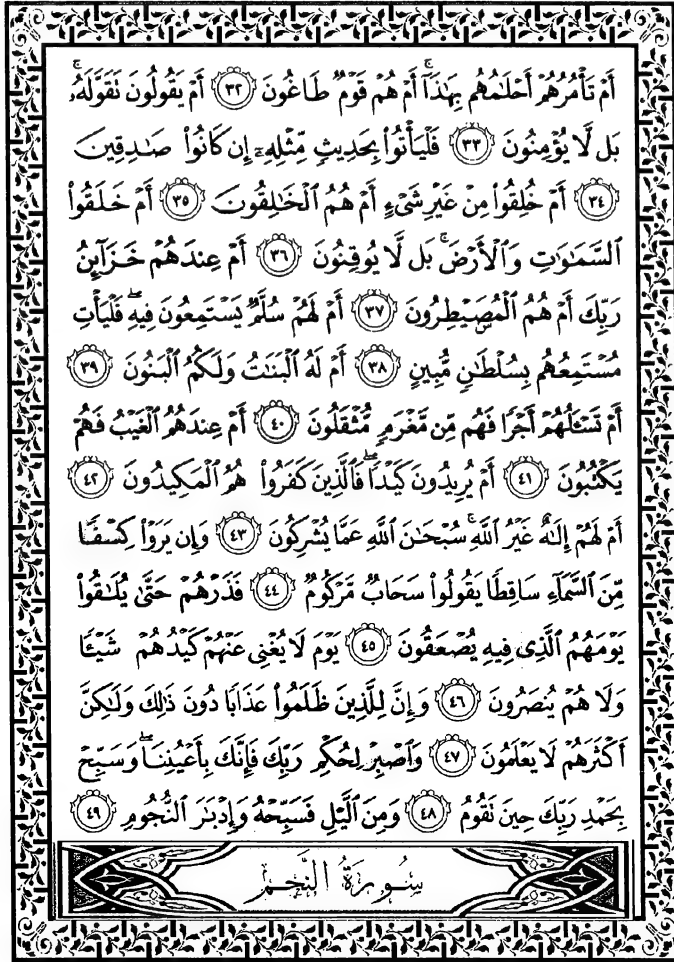 أَمْ تَأْمُرُهُمْ أَحْلَٰمُهُم بِهَٰذَآ ۚ أَمْ هُمْ قَوْمٌ طَاغُونَ ﴿٣٢﴾ أَمْ يَقُولُونَ تَقَوَّلَهُۥ ۚ
بَل لَّا يُؤْمِنُونَ ﴿٣٣﴾ فَلْيَأْتُوا۟ بِحَدِيثٍ مِّثْلِهِۦٓ إِن كَانُوا۟ صَٰدِقِينَ
﴿٣٤﴾ أَمْ خُلِقُوا۟ مِنْ غَيْرِ شَىْءٍ أَمْ هُمُ ٱلْخَٰلِقُونَ ﴿٣٥﴾ أَمْ خَلَقُوا۟
ٱلسَّمَٰوَٰتِ وَٱلْأَرْضَ ۚ بَل لَّا يُوقِنُونَ ﴿٣٦﴾ أَمْ عِندَهُمْ خَزَآئِنُ
رَبِّكَ أَمْ هُمُ ٱلْمُصَۣيْطِرُونَ ﴿٣٧﴾ أَمْ لَهُمْ سُلَّمٌ يَسْتَمِعُونَ فِيهِ ۖ فَلْيَأْتِ
مُسْتَمِعُهُم بِسُلْطَٰنٍ مُّبِينٍ ﴿٣٨﴾ أَمْ لَهُ ٱلْبَنَٰتُ وَلَكُمُ ٱلْبَنُونَ ﴿٣٩﴾
أَمْ تَسْـَٔلُهُمْ أَجْرًا فَهُم مِّن مَّغْرَمٍ مُّثْقَلُونَ ﴿٤٠﴾ أَمْ عِندَهُمُ ٱلْغَيْبُ فَهُمْ
يَكْتُبُونَ ﴿٤١﴾ أَمْ يُرِيدُونَ كَيْدًا ۖ فَٱلَّذِينَ كَفَرُوا۟ هُمُ ٱلْمَكِيدُونَ ﴿٤٢﴾
أَمْ لَهُمْ إِلَٰهٌ غَيْرُ ٱللَّهِ ۚ سُبْحَٰنَ ٱللَّهِ عَمَّا يُشْرِكُونَ ﴿٤٣﴾ وَإِن يَرَوْا۟ كِسْفًا
مِّنَ ٱلسَّمَآءِ سَاقِطًا يَقُولُوا۟ سَحَابٌ مَّرْكُومٌ ﴿٤٤﴾ فَذَرْهُمْ حَتَّىٰ يُلَٰقُوا۟
يَوْمَهُمُ ٱلَّذِى فِيهِ يُصْعَقُونَ ﴿٤٥﴾ يَوْمَ لَا يُغْنِى عَنْهُمْ كَيْدُهُمْ شَيْـًٔا
وَلَا هُمْ يُنصَرُونَ ﴿٤٦﴾ وَإِنَّ لِلَّذِينَ ظَلَمُوا۟ عَذَابًا دُونَ ذَٰلِكَ وَلَٰكِنَّ
أَكْثَرَهُمْ لَا يَعْلَمُونَ ﴿٤٧﴾ وَٱصْبِرْ لِحُكْمِ رَبِّكَ فَإِنَّكَ بِأَعْيُنِنَا ۖ وَسَبِّحْ
بِحَمْدِ رَبِّكَ حِينَ تَقُومُ ﴿٤٨﴾ وَمِنَ ٱلَّيْلِ فَسَبِّحْهُ وَإِدْبَٰرَ ٱلنُّجُومِ ﴿٤٩﴾
سُورَةُ ٱلنَّجْمِ